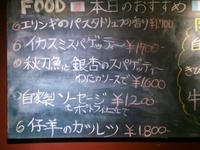 FOOD 本日のおすすめ
⑥エリンギのパスタトリュフの香り ¥1700
⑥イカスミスパゲティ〜 ¥1700-
⑥秋刀魚と銀杏のスパゲティー
わたのソースで ¥1600
自家製ソーセージ ¥1200
⑥仔羊のカツレツ ¥1,800-